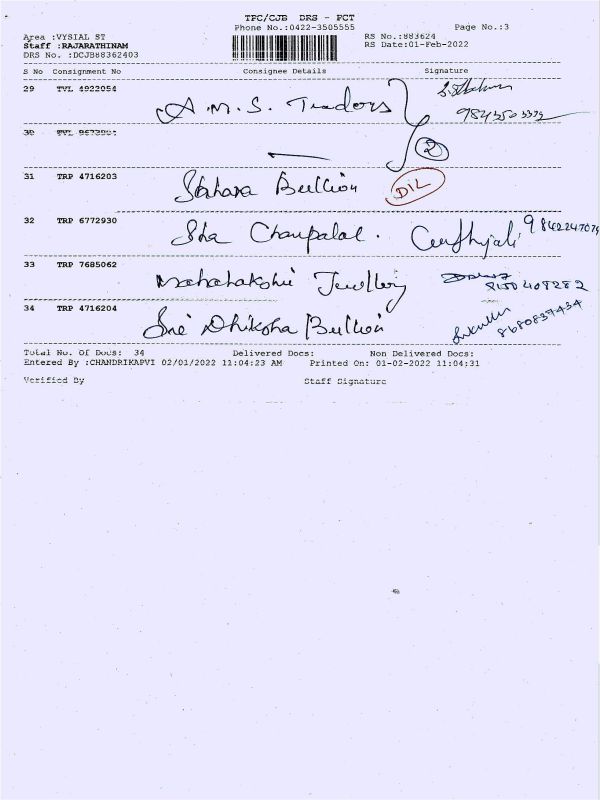 TPC/CJB DRS - PCT
Phone No.:0422-3505555 Page No.:3
Area :VYSIAL ST RS No.:883624
Staff :RAJARATHINAM RS Date:01-Feb-2022
DRS No. :DCJB88362403
S No Consignment No Consignee Details Signature
29 TVL 4922054 A.M.S. Traders
30 TVL 2
31 TRP 4716203 Sahara Bullion DIL
32 TRP 6772930 Sha Champalal. 9842247074
33 TRP 7685062 Mahalakshmi Jewellery 8150408282
34 TRP 4716204 Sri Dhiksha Bullion 8680837434
Total No. Of Docs: 34 Delivered Docs: Non Delivered Docs:
Entered By :CHANDRIKAPVI 02/01/2022 11:04:23 AM Printed On: 01-02-2022 11:04:31
Verified By Staff Signature